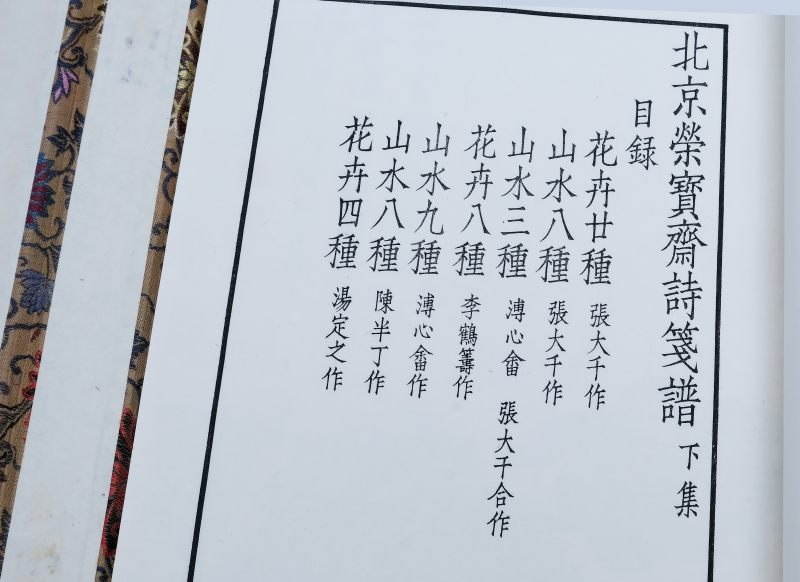 北京榮寶齋詩箋譜 下集
目録
花卉廿種 張大千作
山水八種 張大千作
山水三種 溥心畬 張大千合作
花卉八種 李鶴籌作
山水九種 溥心畬作
山水八種 陳半丁作
花卉四種 湯定之作